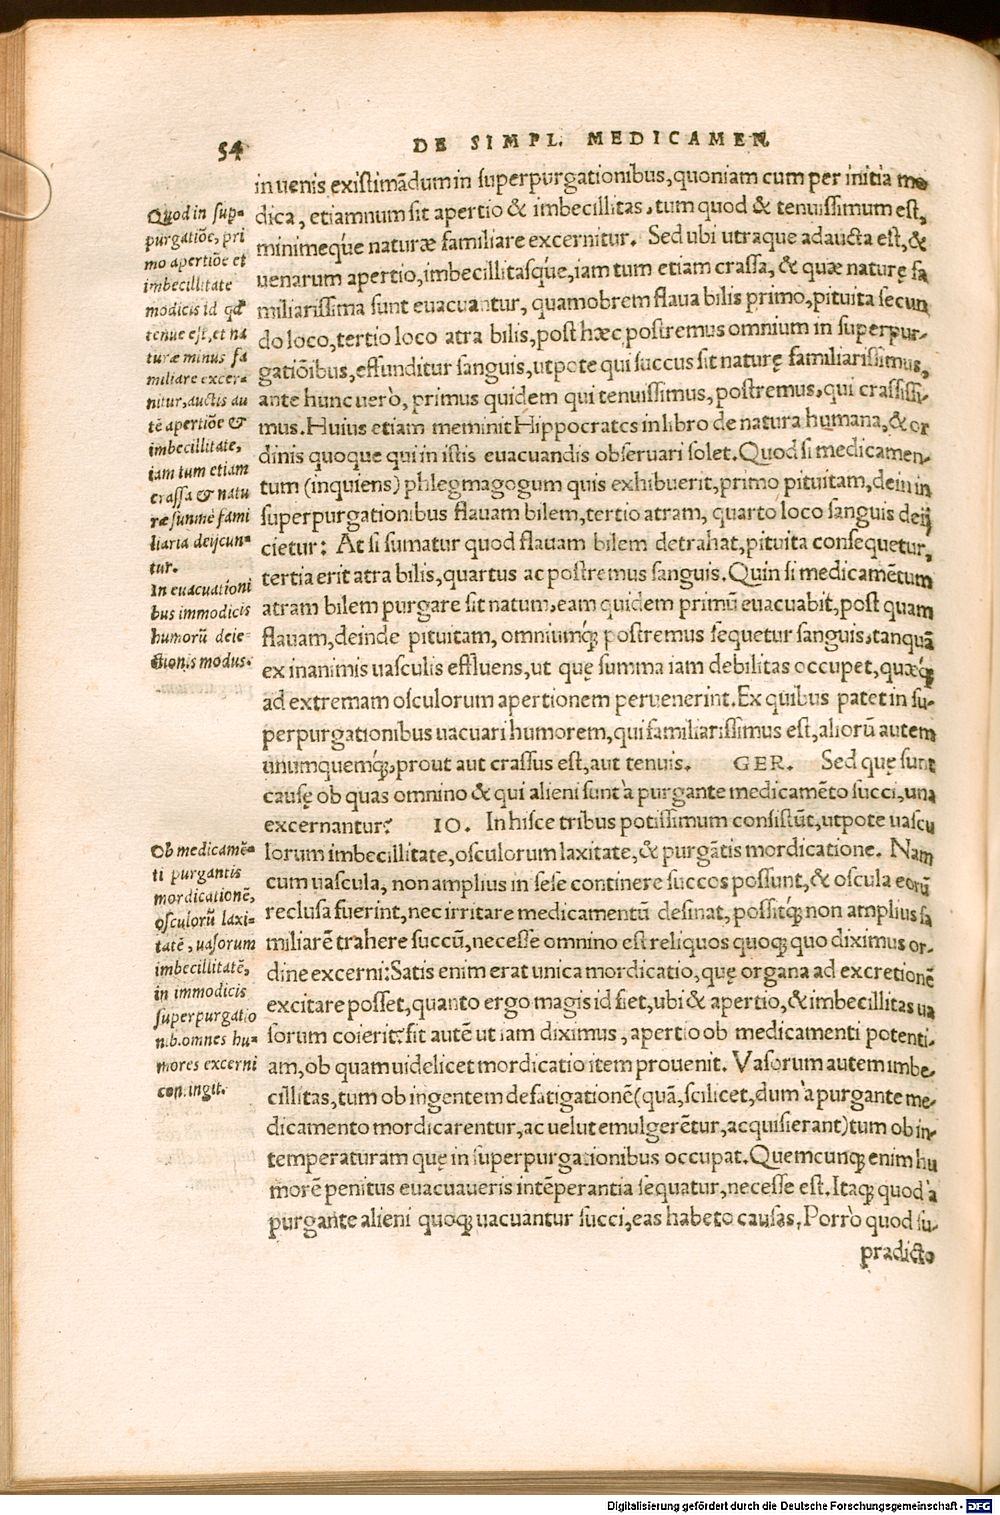 54
DE SIMPL. MEDICAMEN.
in uenis existimãdum in superpurgationibus, quoniam cum per initia mo
dica, etiamnum sit apertio & imbecillitas, tum quod & tenuissimum est,
minimeq́ue naturæ familiare excernitur. Sed ubi utraque adaucta est, &
uenarum apertio, imbecillitasq́ue, iam tum etiam crassa, & quæ naturę fa
miliarissima sunt euacuantur, quamobrem flaua bilis primo, pituita secun
do loco, tertio loco atra bilis, post hæc postremus omnium in superpur-
gatiõibus, effunditur sanguis, utpote qui succus sit naturę familiarissimus,
ante hunc uerò, primus quidem qui tenuissimus, postremus, qui crassissi-
mus. Huius etiam meminit Hippocrates in libro de natura humana, & or
dinis quoque qui in istis euacuandis obseruari solet. Quod si medicamen-
tum (inquiens) phlegmagogum quis exhibuerit, primo pituitam, dein in
superpurgationibus flauam bilem, tertio atram, quarto loco sanguis deij
cietur: At si sumatur quod flauam bilem detrahat, pituita consequetur,
tertia erit atra bilis, quartus ac postremus sanguis. Quin si medicamẽtum
atram bilem purgare sit natum, eam quidem primũ euacuabit, post quam
flauam, deinde pituitam, omniumq́; postremus sequetur sanguis, tanquã
ex inanimis uasculis effluens, ut quę summa iam debilitas occupet, quæq́;
ad extremam osculorum apertionem peruenerint. Ex quibus patet in su-
perpurgationibus uacuari humorem, qui familiarissimus est, aliorũ autem
unumquemq́;, prout aut crassus est, aut tenuis. GER. Sed quę sunt
causę ob quas omnino & qui alieni sunt à purgante medicamẽto succi, una
excernantur? IO. In hisce tribus potissimum consistũt, utpote uascu
lorum imbecillitate, osculorum laxitate, & purgãtis mordicatione. Nam
cum uascula, non amplius in sese continere succos possunt, & oscula eorũ
reclusa fuerint, nec irritare medicamentũ desinat, possitq́; non amplius fa
miliarẽ trahere succũ, necesse omnino est reliquos quoq; quo diximus or-
dine excerni: Satis enim erat unica mordicatio, quę organa ad excretionẽ
excitare posset, quanto ergo magis id fiet, ubi & apertio, & imbecillitas ua
sorum coierit? fit autẽ ut iam diximus, apertio ob medicamenti potenti-
am, ob quam uidelicet mordicatio item prouenit. Vasorum autem imbe-
cillitas, tum ob ingentem defatigationẽ (quã, scilicet, dum à purgante me-
dicamento mordicarentur, ac uelut emulgerẽtur, acquisierant) tum ob in-
temperaturam quę in superpurgationibus occupat. Quemcunq; enim hu
morẽ penitus euacuaueris intẽperantia sequatur, necesse est. Itaq; quod à
purgante alieni quoq; uacuantur succi, eas habeto causas. Porrò quod su-
pradicto
Quod in sup-
purgatiõe, pri
mo apertiõe et
imbecillitate
modicis id qđ
tenue est, et na
turæ minus fa
miliare excer-
nitur, auctis au
tẽ apertiõe &
imbecillitate,
iam tum etiam
crassa & natu
ræ sũmè fami
liaria deijcun-
tur.
In euacuationi
bus immodicis
humorũ deie-
ctionis modus.
Ob medicamẽ-
ti purgantis
mordicationẽ,
osculorũ laxi-
tatẽ, uasorum
imbecillitatẽ,
in immodicis
superpurgatio
nib. omnes hu-
mores excerni
contingit.
Digitalisierung gefördert durch die Deutsche Forschungsgemeinschaft - DFG